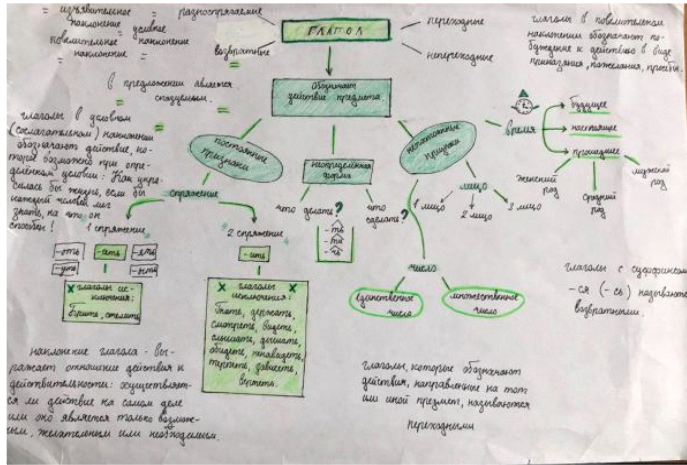 = изъявительное
наклонение
= условное
наклонение
повелительное
= наклонение =
= разноспрягаемые
возвратные
ГЛАГОЛ
переходные
непереходные
глаголы в повелительном
наклонении обозначают по-
буждение к действию в виде
приказания, пожелания, просьбы.
в предложении является
сказуемым.
Обозначает
действие предмета.
глаголы в условном
(сослагательном) наклонении
обозначают действие, ко-
торое возможно при опре-
делённом условии: Как укра-
силась бы жизнь, если бы
каждый человек мог
знать, на что он
способен!
постоянные
признаки
неопределённая
форма
непостоянные
признаки
время
будущее
настоящее
прошедшее
женский
род
средний
род
мужской
род
спряжение
1 спряжение
2 спряжение
что делать?
что
сделать?
-ть
-ти
-чь
лицо
1 лицо
2 лицо
3 лицо
-оть
-еть
-ять
-уть
-ить
глаголы ис-
ключения:
брить, стелить
глаголы
исключения:
гнать, держать,
смотреть, видеть,
слышать, дышать,
обидеть, ненавидеть,
терпеть, зависеть,
вертеть.
число
единственное
число
множественное
число
глаголы с суффиксом
-ся (-сь) называются
возвратными.
наклонение глагола - вы-
ражает отношение действия к
действительности: осуществляет-
ся ли действие на самом деле
или оно является только возмож-
ным, желательным или необходимым.
глаголы, которые обозначают
действия, направленные на тот
или иной предмет, называются
переходными